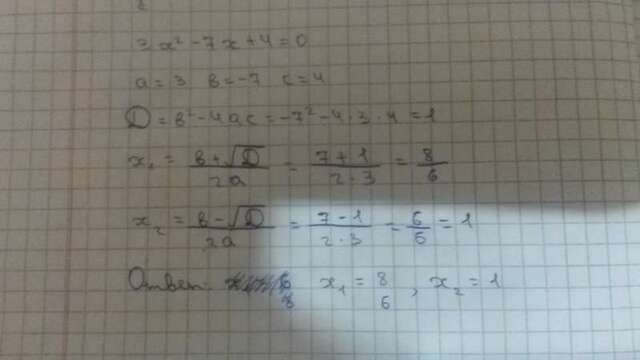 3x² - 7x + 4 = 0
a = 3 b = -7 c = 4
D = b² - 4ac = -7² - 4·3·4 = 1
x₁ = (b + √D)/(2a) = (7 + 1)/(2·3) = 8/6
x₂ = (b - √D)/(2a) = (7 - 1)/(2·3) = 6/6 = 1
Ответ: x₁ = 8/6, x₂ = 1